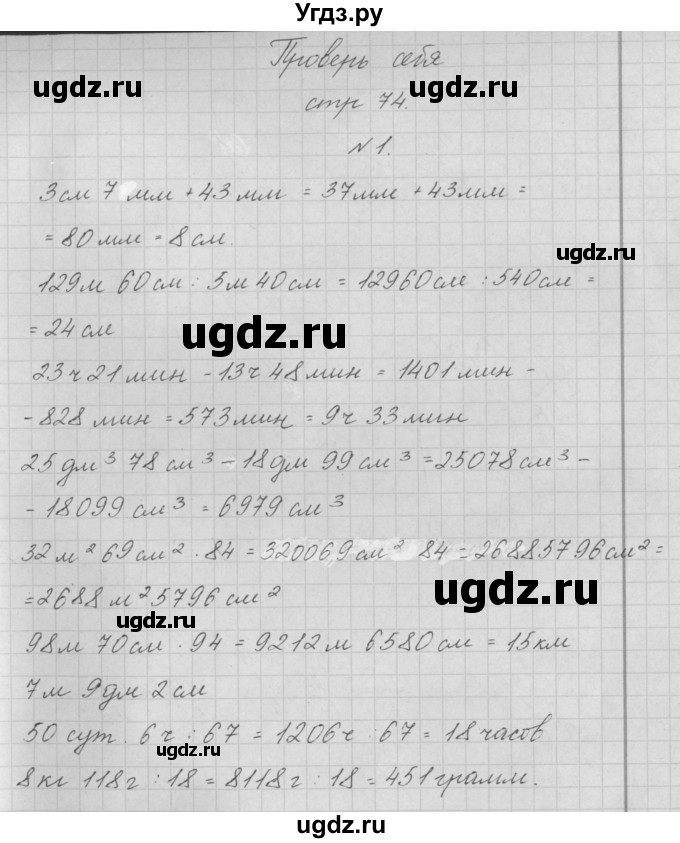 Угдз.ру
Проверь себя
ugdz.ru ugdz.ru
стр 74.
N 1.
3см 7 мм + 43 мм = 37мм + 43мм =
= 80 мм = 8 см.
ugdz.ru
129м 60см : 5м 40см = 12960см : 540см =
= 24 см
ugdz.ru
23ч 21 мин - 13ч 48 мин = 1401 мин -
- 828 мин = 573 мин = 9ч 33 мин
25 дм³ 78 см³ - 18дм 99 см³ = 25078 см³ -
- 18099 см³ = 6979 см³
32 м² 69 см² · 84 = 320069 см² 84 = 26885796 см² =
ugdz.ru
= 2688 м² 5796 см²
ugdz.ru
98м 70см · 94 = 9212 м 6580 см = 15км
7м 9дм 2см
50 сут. 6ч : 67 = 1206ч : 67 = 18 часов
ugdz.ru
8кг 118г : 18 = 8118г : 18 = 451 грамм.
ugdz.ru